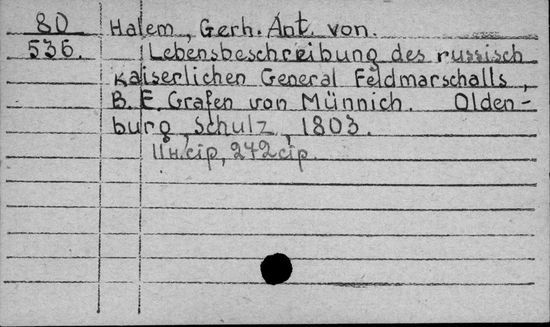 80 Halem, Gerh. Ant. von.
536. Lebensbeschreibung des russisch
kaiserlichen General Feldmarschalls,
B. E. Grafen von Münnich. Olden-
burg, Schulz, 1803.
242 cip.